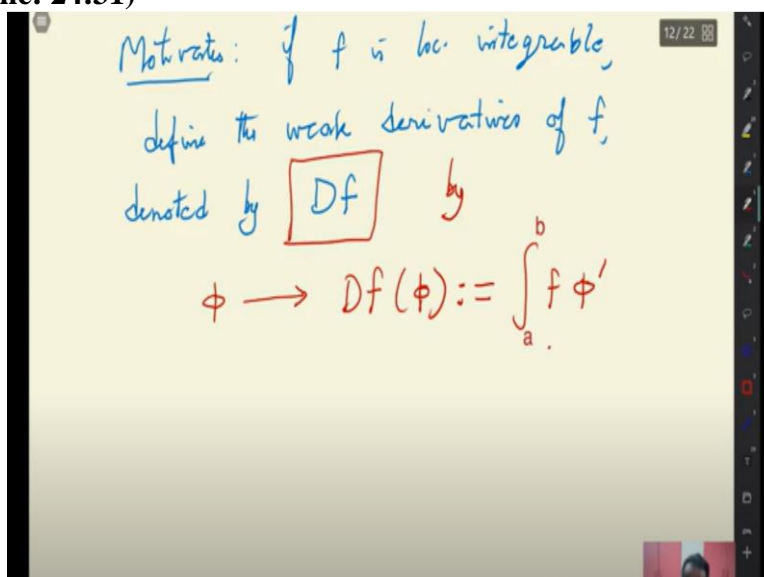 Time: 24:51)
12/22
Motivates: if f is loc. integrable,
define the weak derivatives of f,
denoted by Df by
ϕ ⟶ Df(ϕ) := ∫_a^b f ϕ′